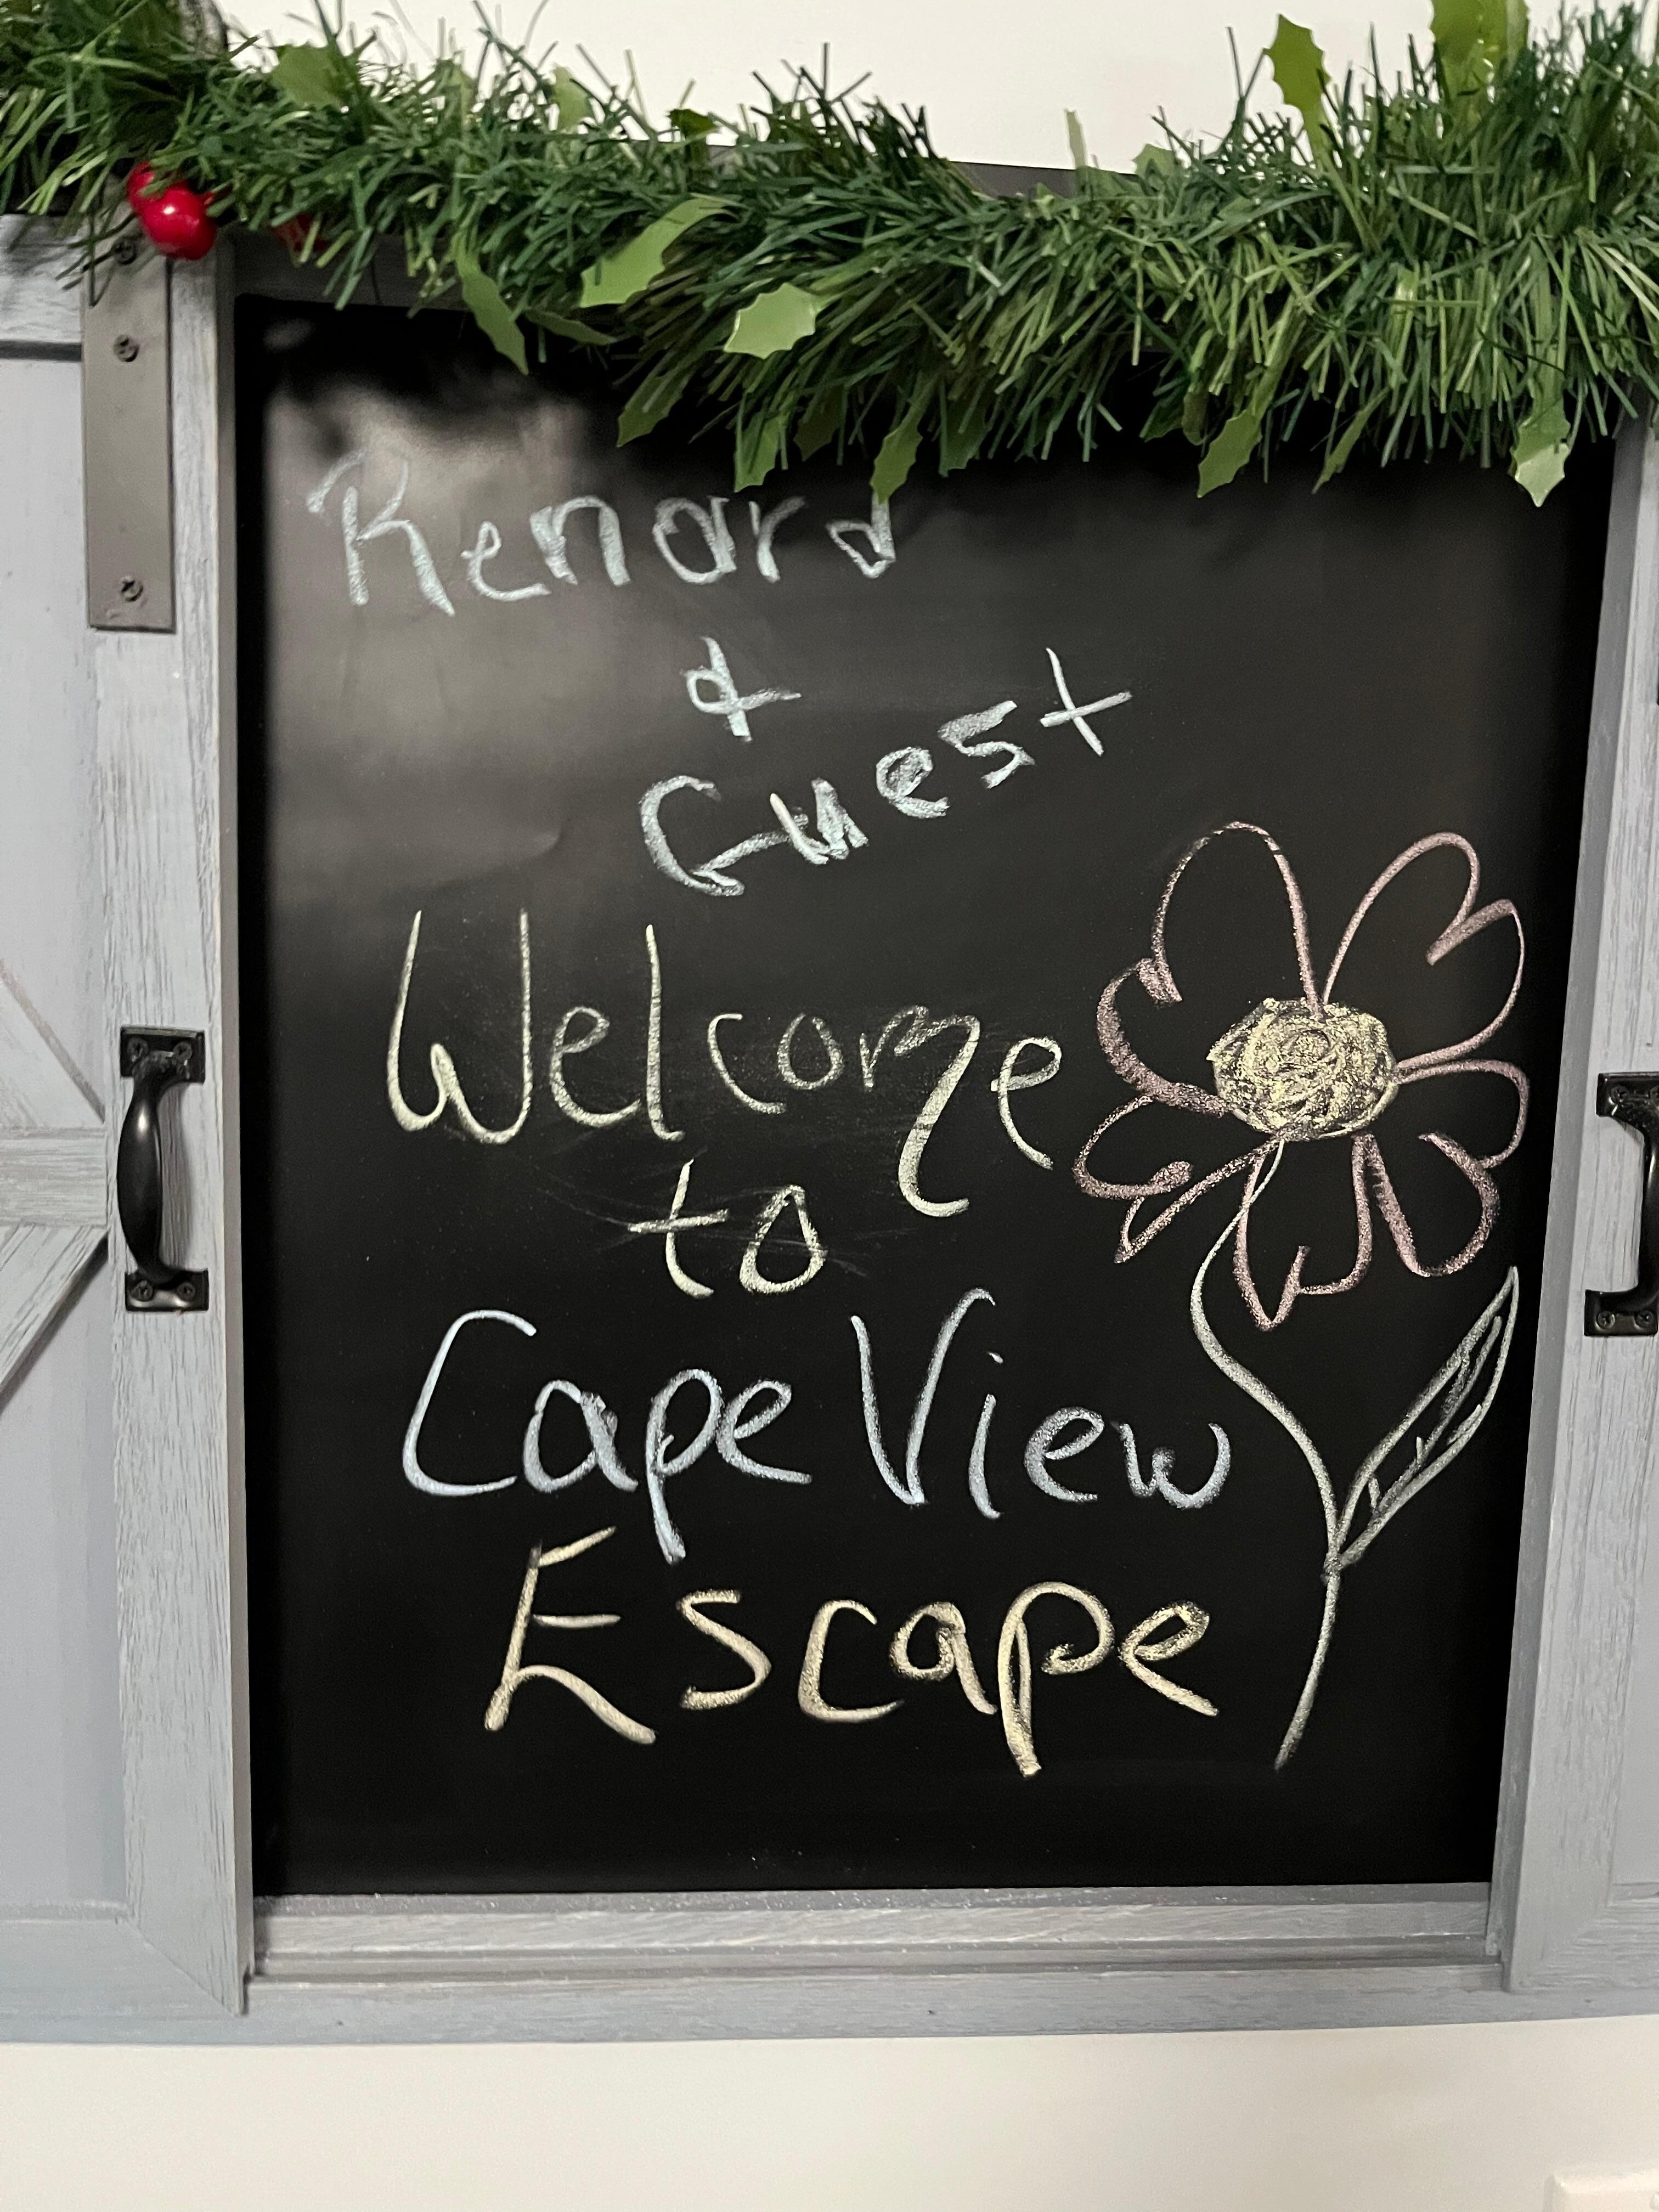 Renard
&
Guest
Welcome
to
Cape View
Escape